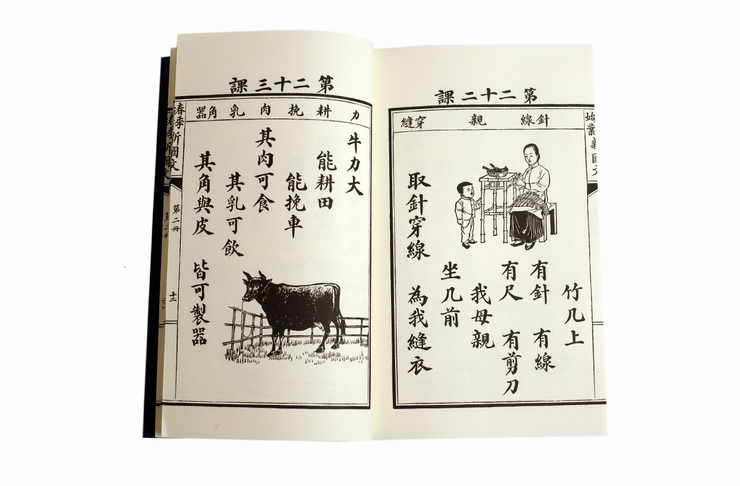 第二十二課
針線 親 穿縫
竹几上
有針 有線
有尺 有剪刀
我母親
坐几前
取針穿線 為我縫衣
第二十三課
力 耕 挽 肉 乳 角器
牛力大
能耕田
能挽車
其肉可食
其乳可飲
其角與皮 皆可製器
春季新國文
第二冊